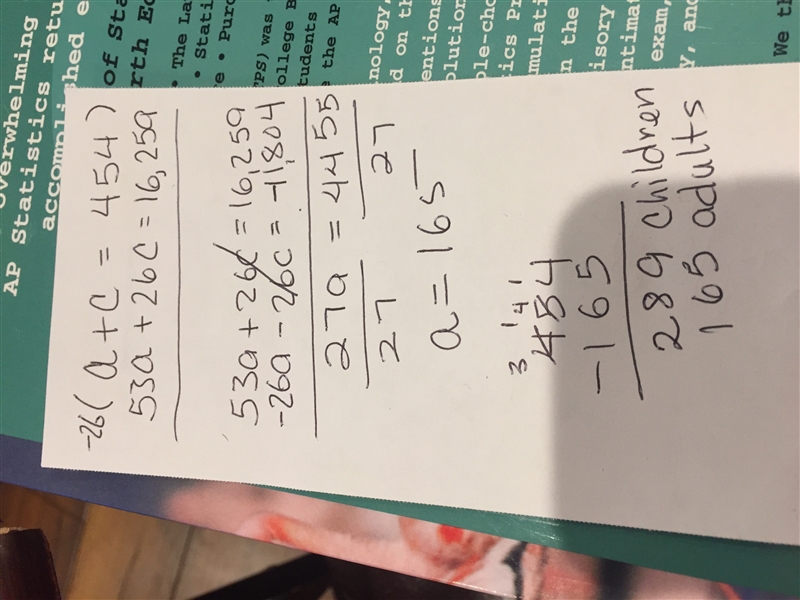 -26( a + c = 454 )
53a + 26c = 16,259
53a + 26c = 16,259
-26a - 26c = -11,804
27a = 4455
27 27
a = 165
3 1 4 1
454
-165
289 children
165 adults
overwhelming
AP Statistics retu
accomplished e
of Sta
rth Ed
• The La
• Stati
e • Purc
TPS) was
ollege B
tudents
e the AP
nology,
d on th
entions
olution
ple-cho
tics Pr
mulati
on the
isory
ntimat
exam,
y, and
We th